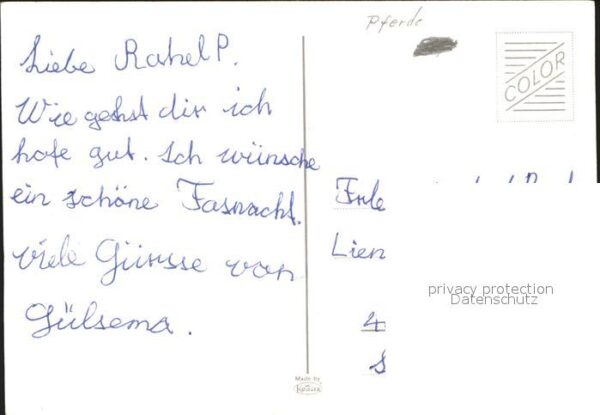 Pferde
COLOR
Liebe Rahel P.
Wie gehst dir ich
hofe gut. Ich wünsche
ein schöne Fasnacht.
viele Günsse von
Gülsema.
Frle
Lien
privacy protection
Datenschutz
4
S
Made by